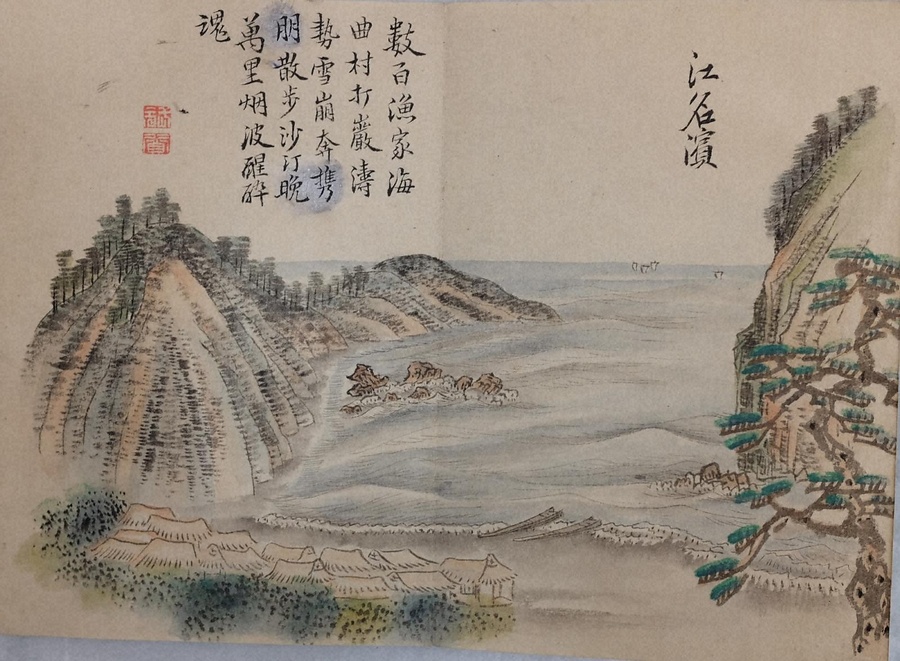 江名濱
數百漁家海
曲村打巖濤
勢雪崩奔携
朋散步沙汀晩
萬里烟波醒醉
魂